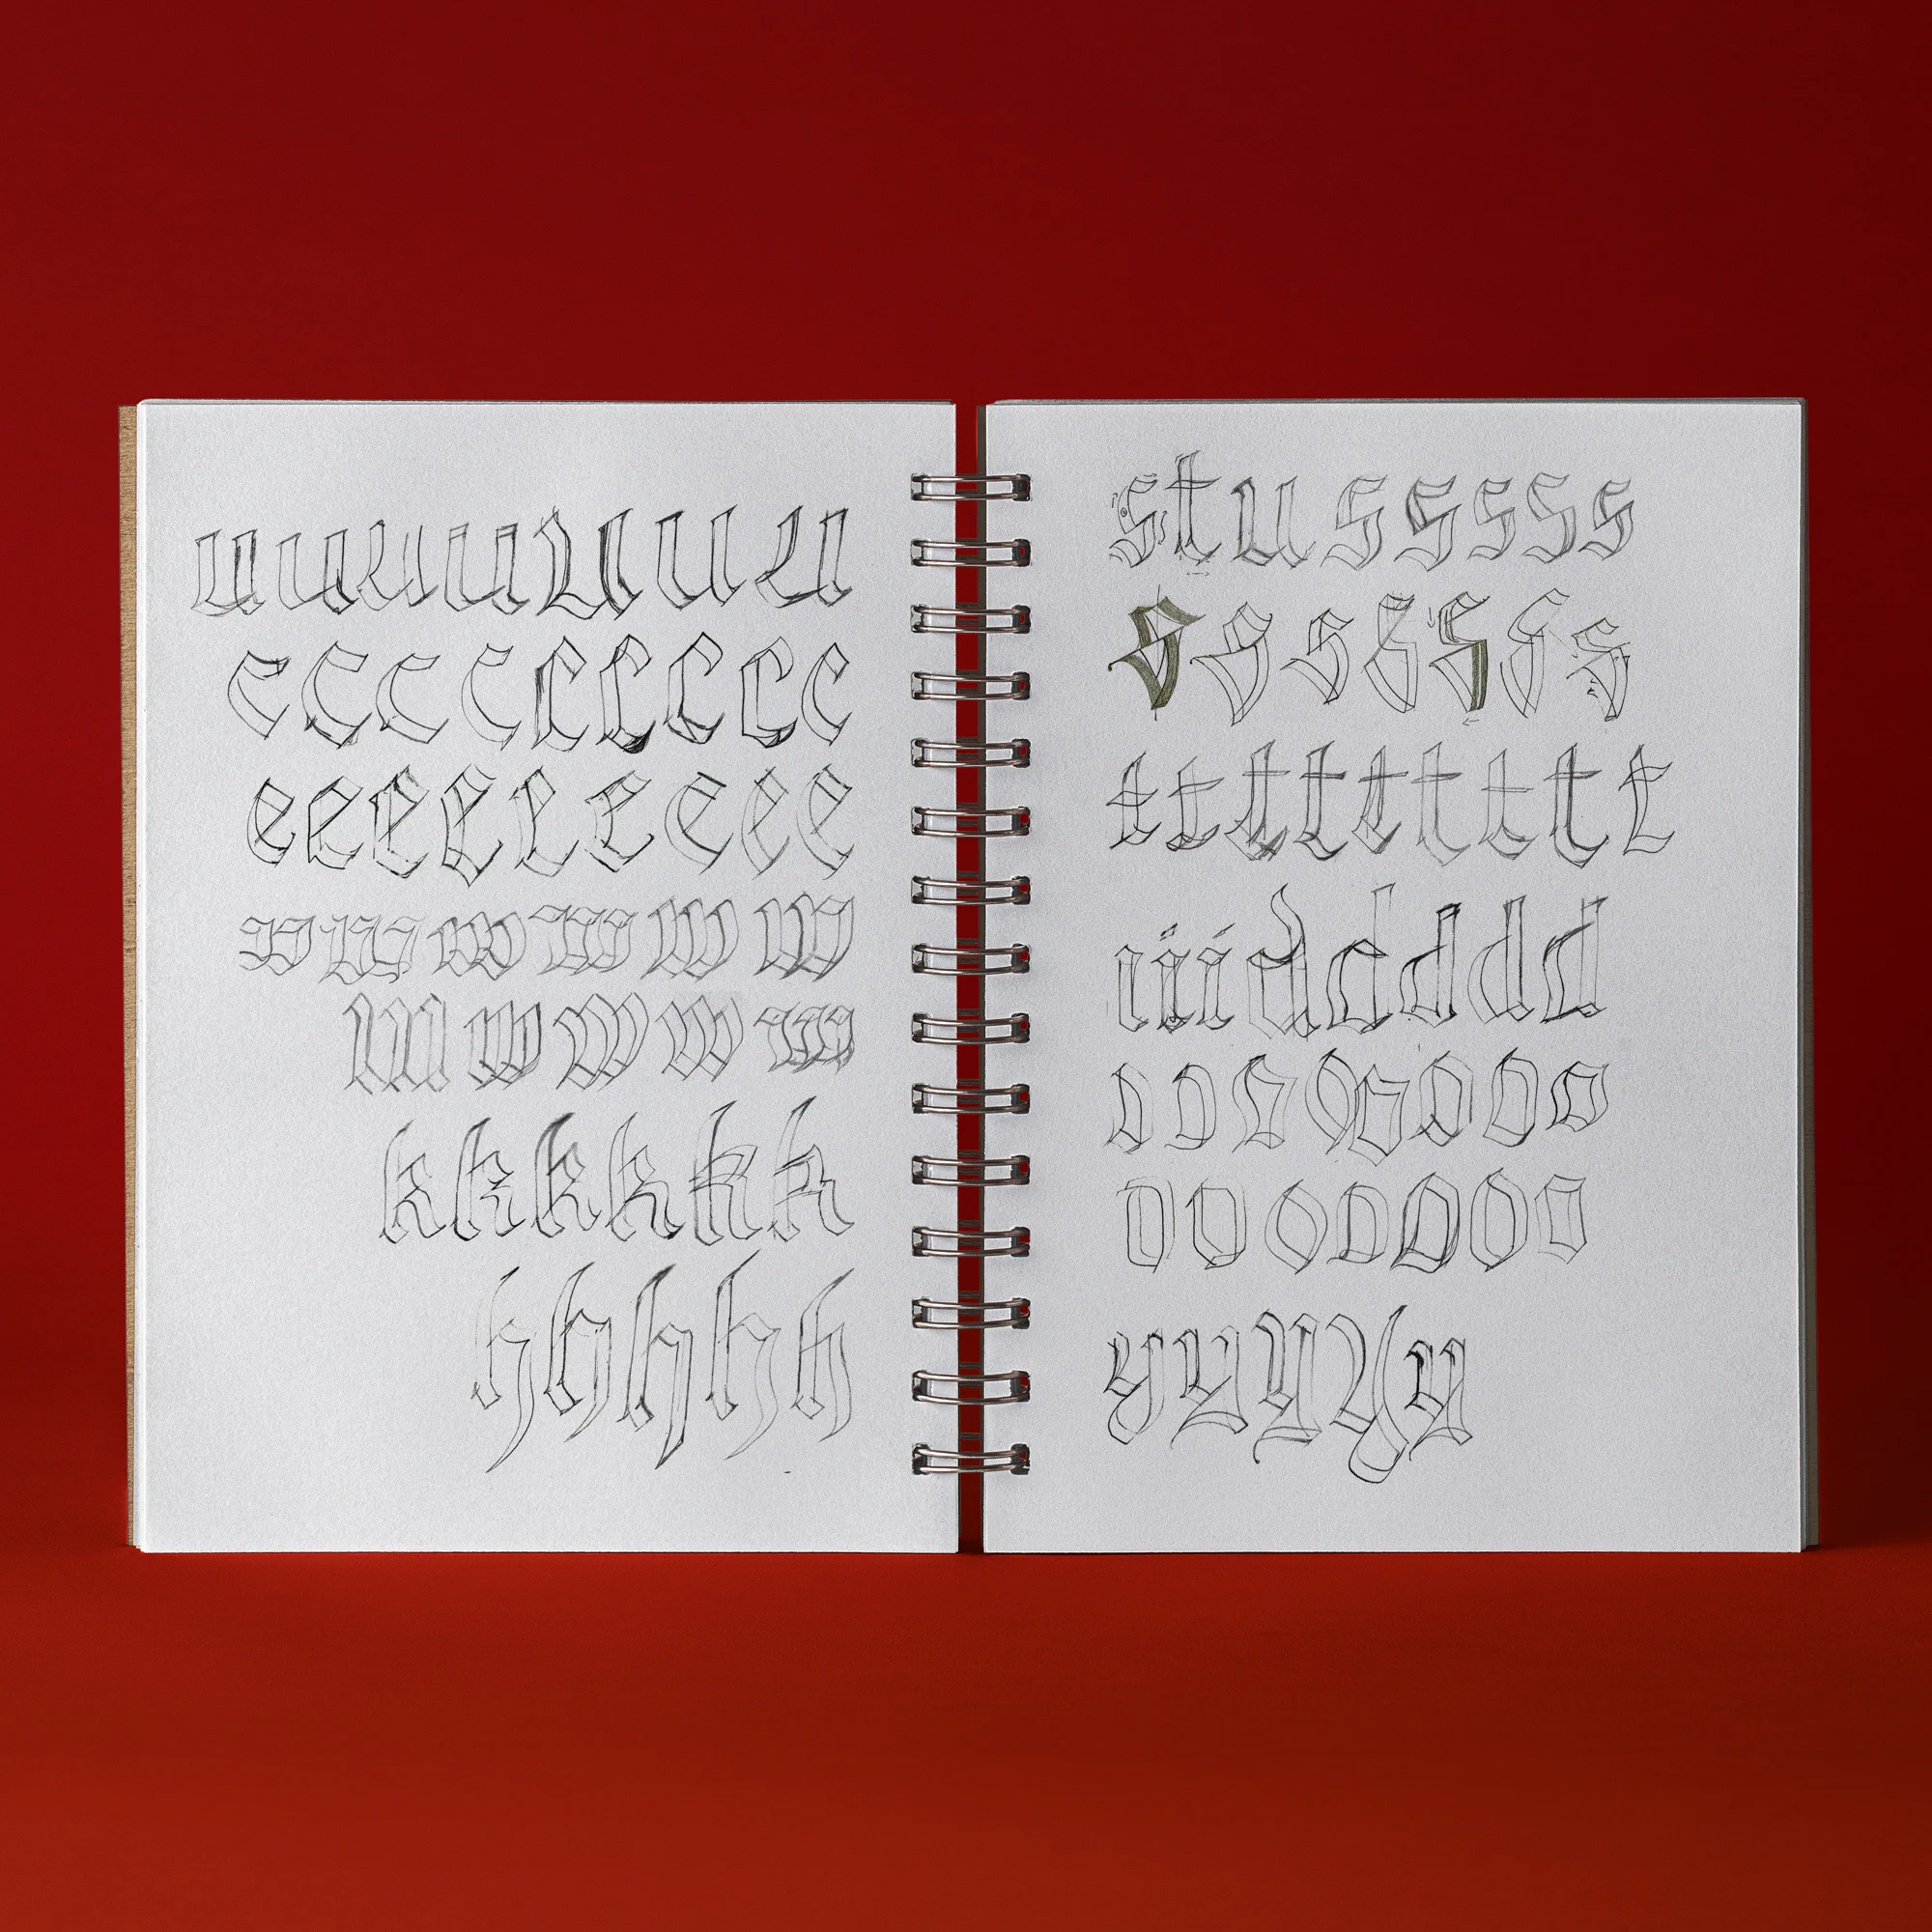 uuuuuuuu
ccccccccc
eeeeeeeee
wwwwww
wwwww
kkkkkk
hhhhh
stusssss
sssssss
ttttttttt
iiiddddd
oooooooo
ooooooo
yyyyy